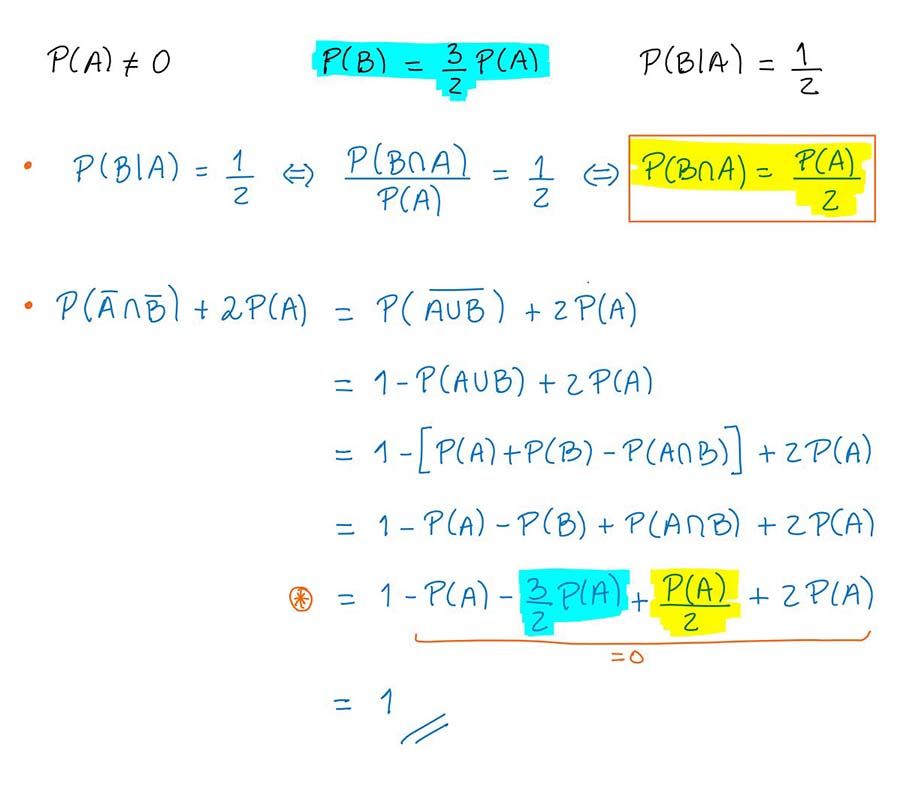 P(A) ≠ 0    P(B) = 3/2 P(A)    P(B|A) = 1/2
• P(B|A) = 1/2 ⇔ P(B∩A)/P(A) = 1/2 ⇔ P(B∩A) = P(A)/2
• P(A̅∩B̅) + 2P(A) = P(A̅∪̅B̅) + 2P(A)
= 1 - P(A∪B) + 2P(A)
= 1 - [P(A) + P(B) - P(A∩B)] + 2P(A)
= 1 - P(A) - P(B) + P(A∩B) + 2P(A)
⊛ = 1 - P(A) - 3/2 P(A) + P(A)/2 + 2P(A)
= 0
= 1 //